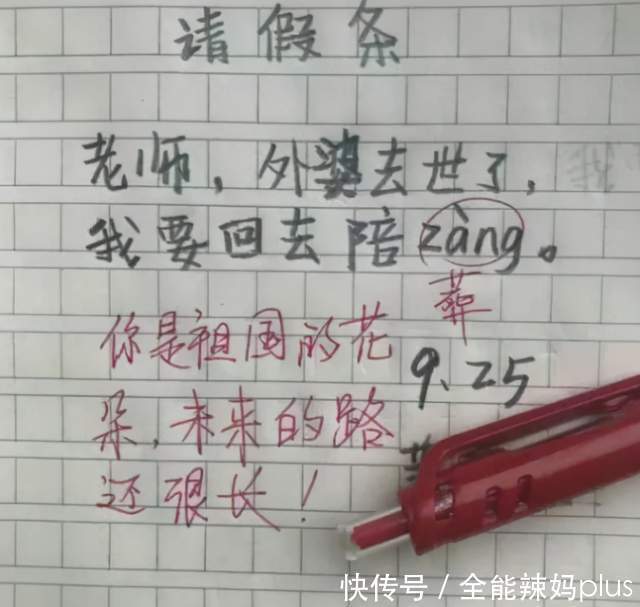 请假条
老师，外婆去世了，
我要回去陪zàng。
葬
你是祖国的花
朵，未来的路
还很长！
9.25
快传号 / 全能辣妈plus